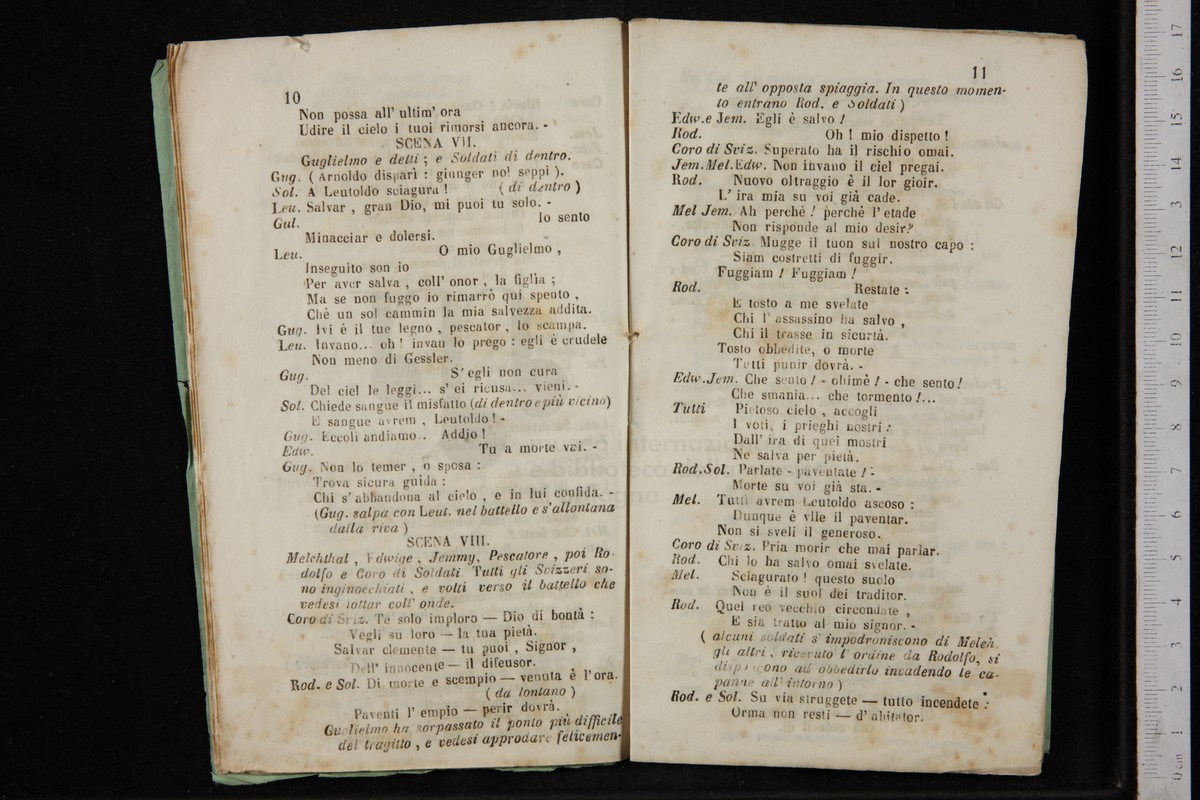 10
Non possa all' ultim' ora
Udire il cielo i tuoi rimorsi ancora. -
SCENA VII.
Guglielmo e detti ; e Soldati di dentro.
Gug. ( Arnoldo disparì : giunger nol seppi ).
Sol. A Leutoldo sciagura ! ( di dentro )
Leu. Salvar , gran Dio, mi puoi tu solo. -
Gul. Io sento
Minacciar e dolersi.
Leu. O mio Guglielmo ,
Inseguito son io
Per aver salva , coll' onor , la figlia ;
Ma se non fuggo io rimarrò qui spento ,
Chè un sol cammin la mia salvezza addita.
Gug. Ivi è il tue legno , pescator , lo scampa.
Leu. Invano... oh ! invan lo prego : egli è crudele
Non meno di Gessler.
Gug. S' egli non cura
Del ciel le leggi... s' ei ricusa... vieni. -
Sol. Chiede sangue il misfatto (di dentro e più vicino)
E sangue avrem , Leutoldo ! -
Gug. Eccoli andiamo.. Addio !
Edw. Tu a morte vai. -
Gug. Non lo temer , o sposa :
Trova sicura guida :
Chi s' abbandona al cielo , e in lui confida. -
(Gug. salpa con Leut. nel battello e s'allontana
dalla riva )
SCENA VIII.
Melchthal , Edwige , Jemmy, Pescatore , poi Ro-
dolfo e Coro di Soldati. Tutti gli Svizzeri so-
no inginocchiati , e volti verso il battello che
vedesi lottar coll' onde.
Coro di Sviz. Te solo imploro — Dio di bontà :
Vegli su loro — la tua pietà.
Salvar clemente — tu puoi , Signor ,
Dell' innocente — il difensor.
Rod. e Sol. Di morte e scempio — venuta è l' ora.
( da lontano )
Paventi l' empio — perir dovrà.
Guglielmo ha sorpassato il ponto più difficile
del tragitto , e vedesi approdare felicemen-
11
te all' opposta spiaggia. In questo momen-
to entrano Rod. e Soldati )
Edw.e Jem. Egli è salvo !
Rod. Oh ! mio dispetto !
Coro di Sviz. Superato ha il rischio omai.
Jem.Mel.Edw. Non invano il ciel pregai.
Rod. Nuovo oltraggio è il lor gioir.
L' ira mia su voi già cade.
Mel Jem. Ah perchè ! perchè l' etade
Non risponde al mio desir?
Coro di Sviz. Mugge il tuon sul nostro capo :
Siam costretti di fuggir.
Fuggiam ! Fuggiam !
Rod. Restate :
E tosto a me svelate
Chi l' assassino ha salvo ,
Chi il trasse in sicurtà.
Tosto obbedite, o morte
Tutti punir dovrà. -
Edw.Jem. Che sento ! - ohimè ! - che sento!
Che smania... che tormento !...
Tutti Pietoso cielo , accogli
I voti, i prieghi nostri :
Dall' ira di quei mostri
Ne salva per pietà.
Rod.Sol. Parlate - paventate ! -
Morte su voi già sta. -
Mel. Tutti avrem Leutoldo ascoso :
Dunque è vlle il paventar.
Non si sveli il generoso.
Coro di Sviz. Pria morir che mai parlar.
Rod. Chi lo ha salvo omai svelate.
Mel. Sciagurato ! questo suolo
Non è il suol dei traditor.
Rod. Quel reo vecchio circondate ,
E sia tratto al mio signor. -
( alcuni soldati s' impodroniscono di Melch.
gli altri , ricevuto l' ordine da Rodolfo, si
dispongono ad obbedirlo invadendo le ca-
panne all' intorno )
Rod. e Sol. Su via struggete — tutto incendete :
Orma non resti — d' abitator.